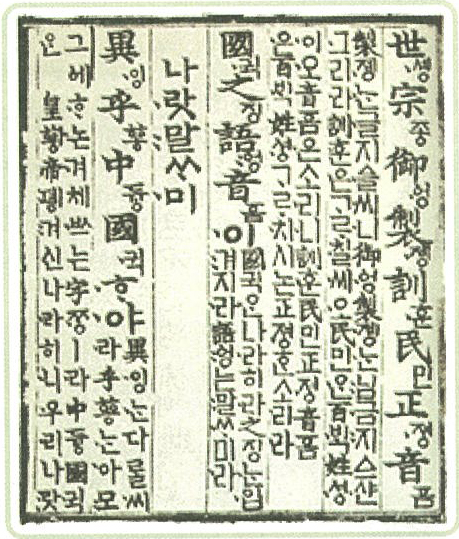 世솅宗종御엉製졩訓훈民민正졍音ᅙᅳᆷ
製졩ᄂᆞᆫ글지ᅀᅳᆯ씨니御엉製졩ᄂᆞᆫ님금지ᅀᅳ샨
그리라訓훈은ᄀᆞᄅᆞ칠씨오民민ᄋᆞᆫ百ᄇᆡᆨ姓셩
이오音ᅙᅳᆷ은소리니訓훈民민正졍音ᅙᅳᆷ
은百ᄇᆡᆨ姓셩ᄀᆞᄅᆞ치시논正졍ᄒᆞᆫ소리라
國귁之징語ᅌᅥᆼ音ᅙᅳᆷ이
國귁ᄋᆞᆫ나라히라之징ᄂᆞᆫ입
겨지라語ᅌᅥᆼ는말ᄊᆞ미라
나랏말ᄊᆞ미
異잉乎ᅘᅩᆼ中듀ᇰ國귁ᄒᆞ야
異잉ᄂᆞᆫ다ᄅᆞᆯ씨
라乎ᅘᅩᆼᄂᆞᆫ아모
그ᅌᅦᄒᆞ논겨체쓰는字ᄍᆞᆼㅣ라中듀ᇰ國귁
ᄋᆞᆫ 皇ᅘᅪᇰ帝뎽겨신나라히니우리나랏